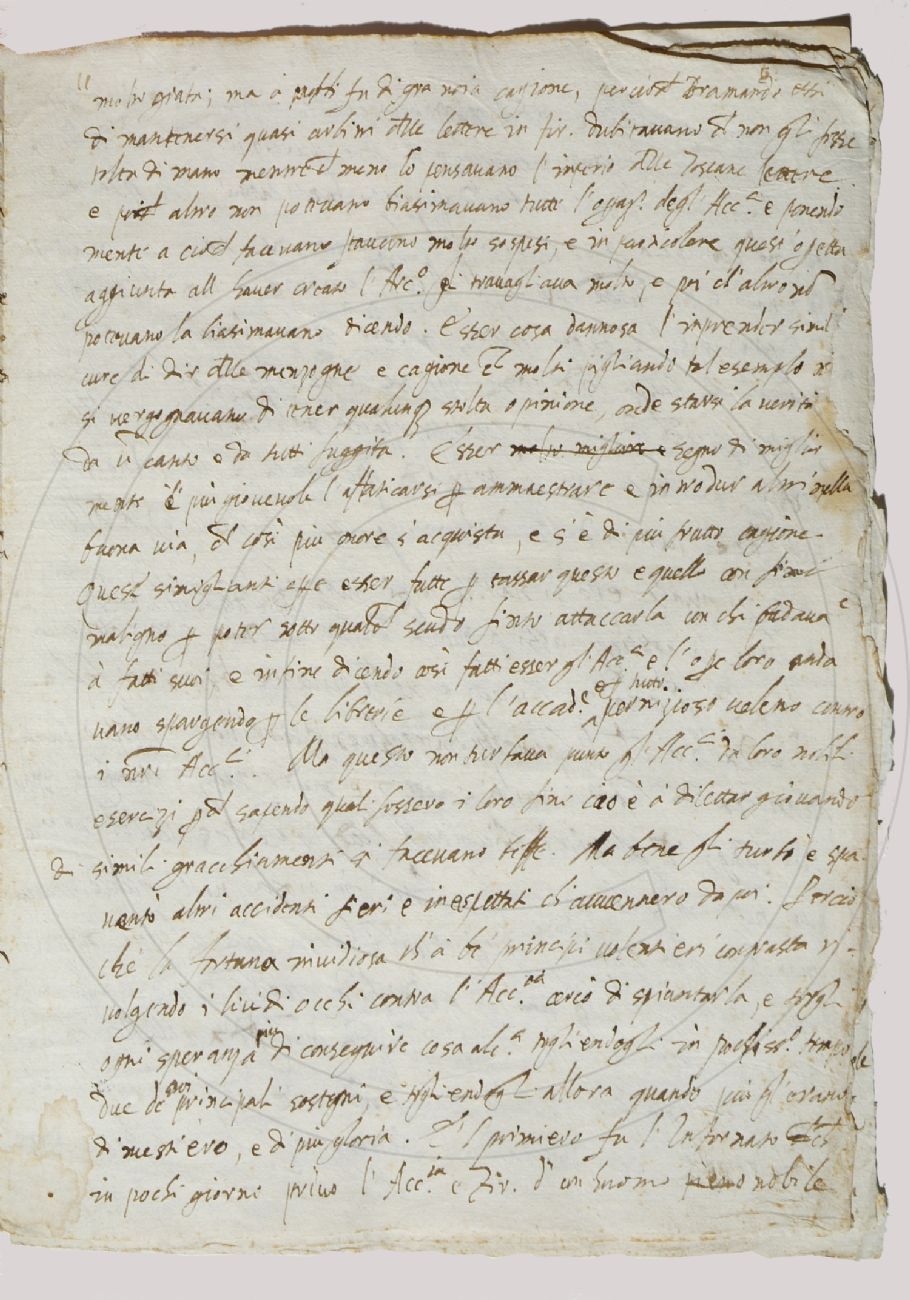 molto grata; ma à molti fu di gra noia cagione, bramando essi
di mantenersi quasi arbitri delle lettere in Fir. dubitavano non gli fosse
tolto di mano meno lo pensavano l'imperio delle Toscane lettere
e altro non potevano biasimavano tutte degl'Acc.i e ponendo
mente a facevano stavano molto sospesi, e in questa
aggiunta all haver creato l'Arc.o gli travagliava molto, e altro
potevano la biasimavano dicendo. Esser cosa dannosa l'inprender simil
cure di dir delle menzogne e cagione molti pigliando tal esempio
si vergognavano di tener qualunq stolta opinione, onde starsi la verità
da canto e da tutti fuggita. Esser molto migliore e segno di miglior
mente più giovevole l'affaticarsi ammaestrare e introdur altri nella
buona via, così più onore s'acquista, e s'è di più frutto cagione
Queste simiglianti esser fatte tassar questo e quello con
maligno poter sotto scudo finto attaccarla con chi badava
à fatti suoi, e infine dicendo così fatti esser gl'Acc.i e loro anda
vano spargendo le librerie e l'accad.e e tutto pernizioso veleno contro
i nri Acc.i. Ma questo non turbava punto gl'Acc.i da loro nobili
esercizi sapendo quali fossero i loro fini cioè à dilettar giovando
di simili gracchiamenti si facevano beffe. Ma bene gli turbò e spa
ventò altri accidenti fieri e inespettati ch'avvennero da poi. Percio
che la fortuna invidiosa ch'à be principii volentieri contrasta ri-
volgendo i lividi occhi contra l'Acc.ia cercò di spiantarla, e torgli
ogni speranza più di conseguire cosa alc.a togliendogli in pochiss.o tempo
due de suoi principali sostegni, e togliendogli allora quando più gl'erano
di mestiero, e di più gloria. E l primiero fu l'Infornato
in pochi giorni privo l'Acc.ia e Fir. d'un huomo pieno nobile